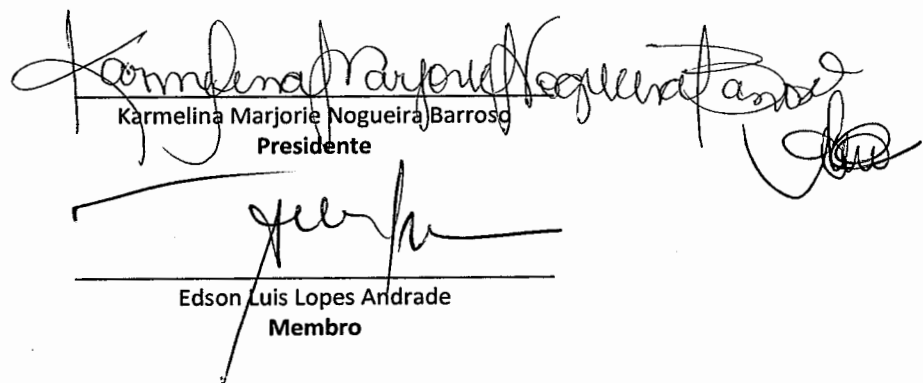 Karmelina Marjorie Nogueira Barroso
Karmelina Marjorie Nogueira Barroso
Presidente
Edson Luis Lopes Andrade
Membro